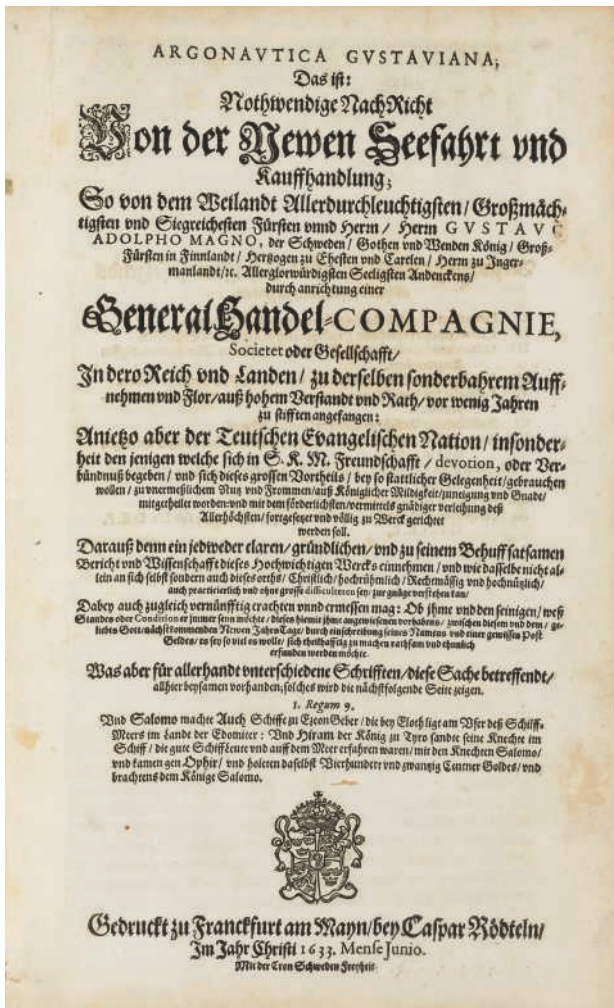 ARGONAVTICA GVSTAVIANA;
Das ist:
Nothwendige NachRicht
Von der Newen Seefahrt vnd
Kauffhandlung;
So von dem Weilandt Allerdurchleuchtigsten/ Großmäch-
tigsten vnd Siegreichesten Fürsten vnnd Herrn/ Herrn GVSTAVO
ADOLPHO MAGNO, der Schweden/ Gothen vnd Wenden König/ Groß-
Fürsten in Finnlandt/ Hertzogen zu Ehesten vnd Carelen/ Herrn zu Inger-
manlandt/ꝛc. Allerglorwürdigsten Seeligsten Andenckens/
durch anrichtung einer
General Handel-COMPAGNIE,
Societet oder Gesellschafft/
In dero Reich vnd Landen/ zu derselben sonderbahrem Auff-
nehmen vnd Flor/ auß hohem Verstandt vnd Rath/ vor wenig Jahren
zu stifften angefangen:
Anietzo aber der Teutschen Evangelischen Nation/ insonder-
heit den jenigen welche sich in S. K. M. Freundschafft/ devotion, oder Ver-
bündnuß begeben/ vnd sich dieses grossen Vortheils/ bey so stattlicher Gelegenheit/ gebrauchen
wollen/ zu vnermeßlichem Nutz vnd Frommen/ auß Königlicher Mildigkeit/ zuneigung vnd Gnade/
mitgetheilet worden: vnd mit dem förderlichsten/ vermittels gnädiger verleihung deß
Allerhöchsten/ fortgesetzet vnd völlig zu Werck gerichtet
werden soll.
Darauß denn ein jedweder claren/ gründlichen/ vnd zu seinem Behuff satsamen
Bericht vnd Wissenschafft dieses Hochwichtigen Wercks einnehmen/ vnd wie dasselbe nicht al-
lein an sich selbst sondern auch dieses orths/ Christlich/ hochrühmlich/ Rechtmässig vnd hochnützlich/
auch practicierlich vnd ohne grosse difficulteten sey/ zur gnüge verstehen kan/
Dabey auch zugleich vernünfftig erachten vnnd ermessen mag: Ob jhme vnd den seinigen/ weß
Standes oder Condition er jmmer seyn möchte/ dieses hiemit jhme angewiesenen vorhabens/ zwischen diesem vnd dem/ ge-
liebts Gott/ nächstkommenden Newen Jahrs Tage/ durch einschreibung seines Namens vnd einer gewissen Post
Geldes/ es sey so viel es wolle/ sich theilhafftig zu machen rathsam vnd thunlich
erfunden werden möchte.
Was aber für allerhandt vnterschiedene Schrifften/ diese Sache betreffendt/
allhier beysamen vorhanden; solches wird die nächstfolgende Seite zeigen.
1. Regum 9.
Vnd Salomo machte Auch Schiffe zu Ezeon Geber/ die bey Eloth ligt am Vfer deß Schilff-
Meers im Lande der Edomiter: Vnd Hiram der König zu Tyro sandte seine Knechte im
Schiff/ die gute Schiffleute vnd auff dem Meer erfahren waren/ mit den Knechten Salomo/
vnd kamen gen Ophir/ vnd holeten daselbst Vierhundert vnd zwantzig Centner Goldes/ vnd
brachtens dem Könige Salomo.
Gedruckt zu Franckfurt am Mayn/ bey Caspar Rödteln/
Im Jahr Christi 1633. Mense Junio.
Mit der Cron Schweden Freyheit.